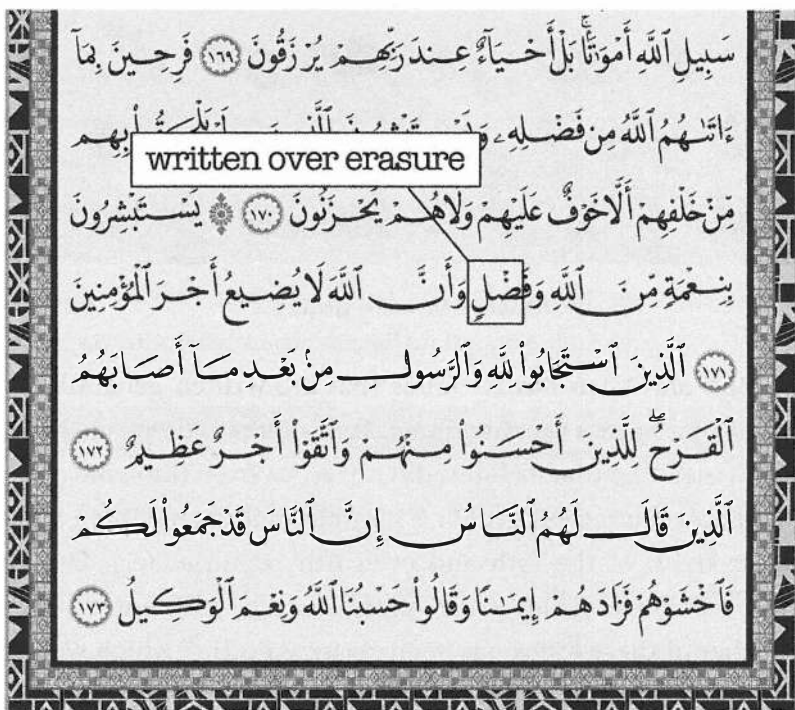 سَبِيلِ ٱللَّهِ أَمْوَٰتًۢا ۚ بَلْ أَحْيَآءٌ عِندَ رَبِّهِمْ يُرْزَقُونَ ١٦٩ فَرِحِينَ بِمَآ
ءَاتَىٰهُمُ ٱللَّهُ مِن فَضْلِهِۦ بِهِم
written over erasure
مِّنْ خَلْفِهِمْ أَلَّا خَوْفٌ عَلَيْهِمْ وَلَا هُمْ يَحْزَنُونَ ١٧٠ ۞ يَسْتَبْشِرُونَ
بِنِعْمَةٍ مِّنَ ٱللَّهِ وَفَضْلٍ وَأَنَّ ٱللَّهَ لَا يُضِيعُ أَجْرَ ٱلْمُؤْمِنِينَ
١٧١ ٱلَّذِينَ ٱسْتَجَابُوا۟ لِلَّهِ وَٱلرَّسُولِ مِنۢ بَعْدِ مَآ أَصَابَهُمُ
ٱلْقَرْحُ ۚ لِلَّذِينَ أَحْسَنُوا۟ مِنْهُمْ وَٱتَّقَوْا۟ أَجْرٌ عَظِيمٌ ١٧٢
ٱلَّذِينَ قَالَ لَهُمُ ٱلنَّاسُ إِنَّ ٱلنَّاسَ قَدْ جَمَعُوا۟ لَكُمْ
فَٱخْشَوْهُمْ فَزَادَهُمْ إِيمَٰنًا وَقَالُوا۟ حَسْبُنَا ٱللَّهُ وَنِعْمَ ٱلْوَكِيلُ ١٧٣